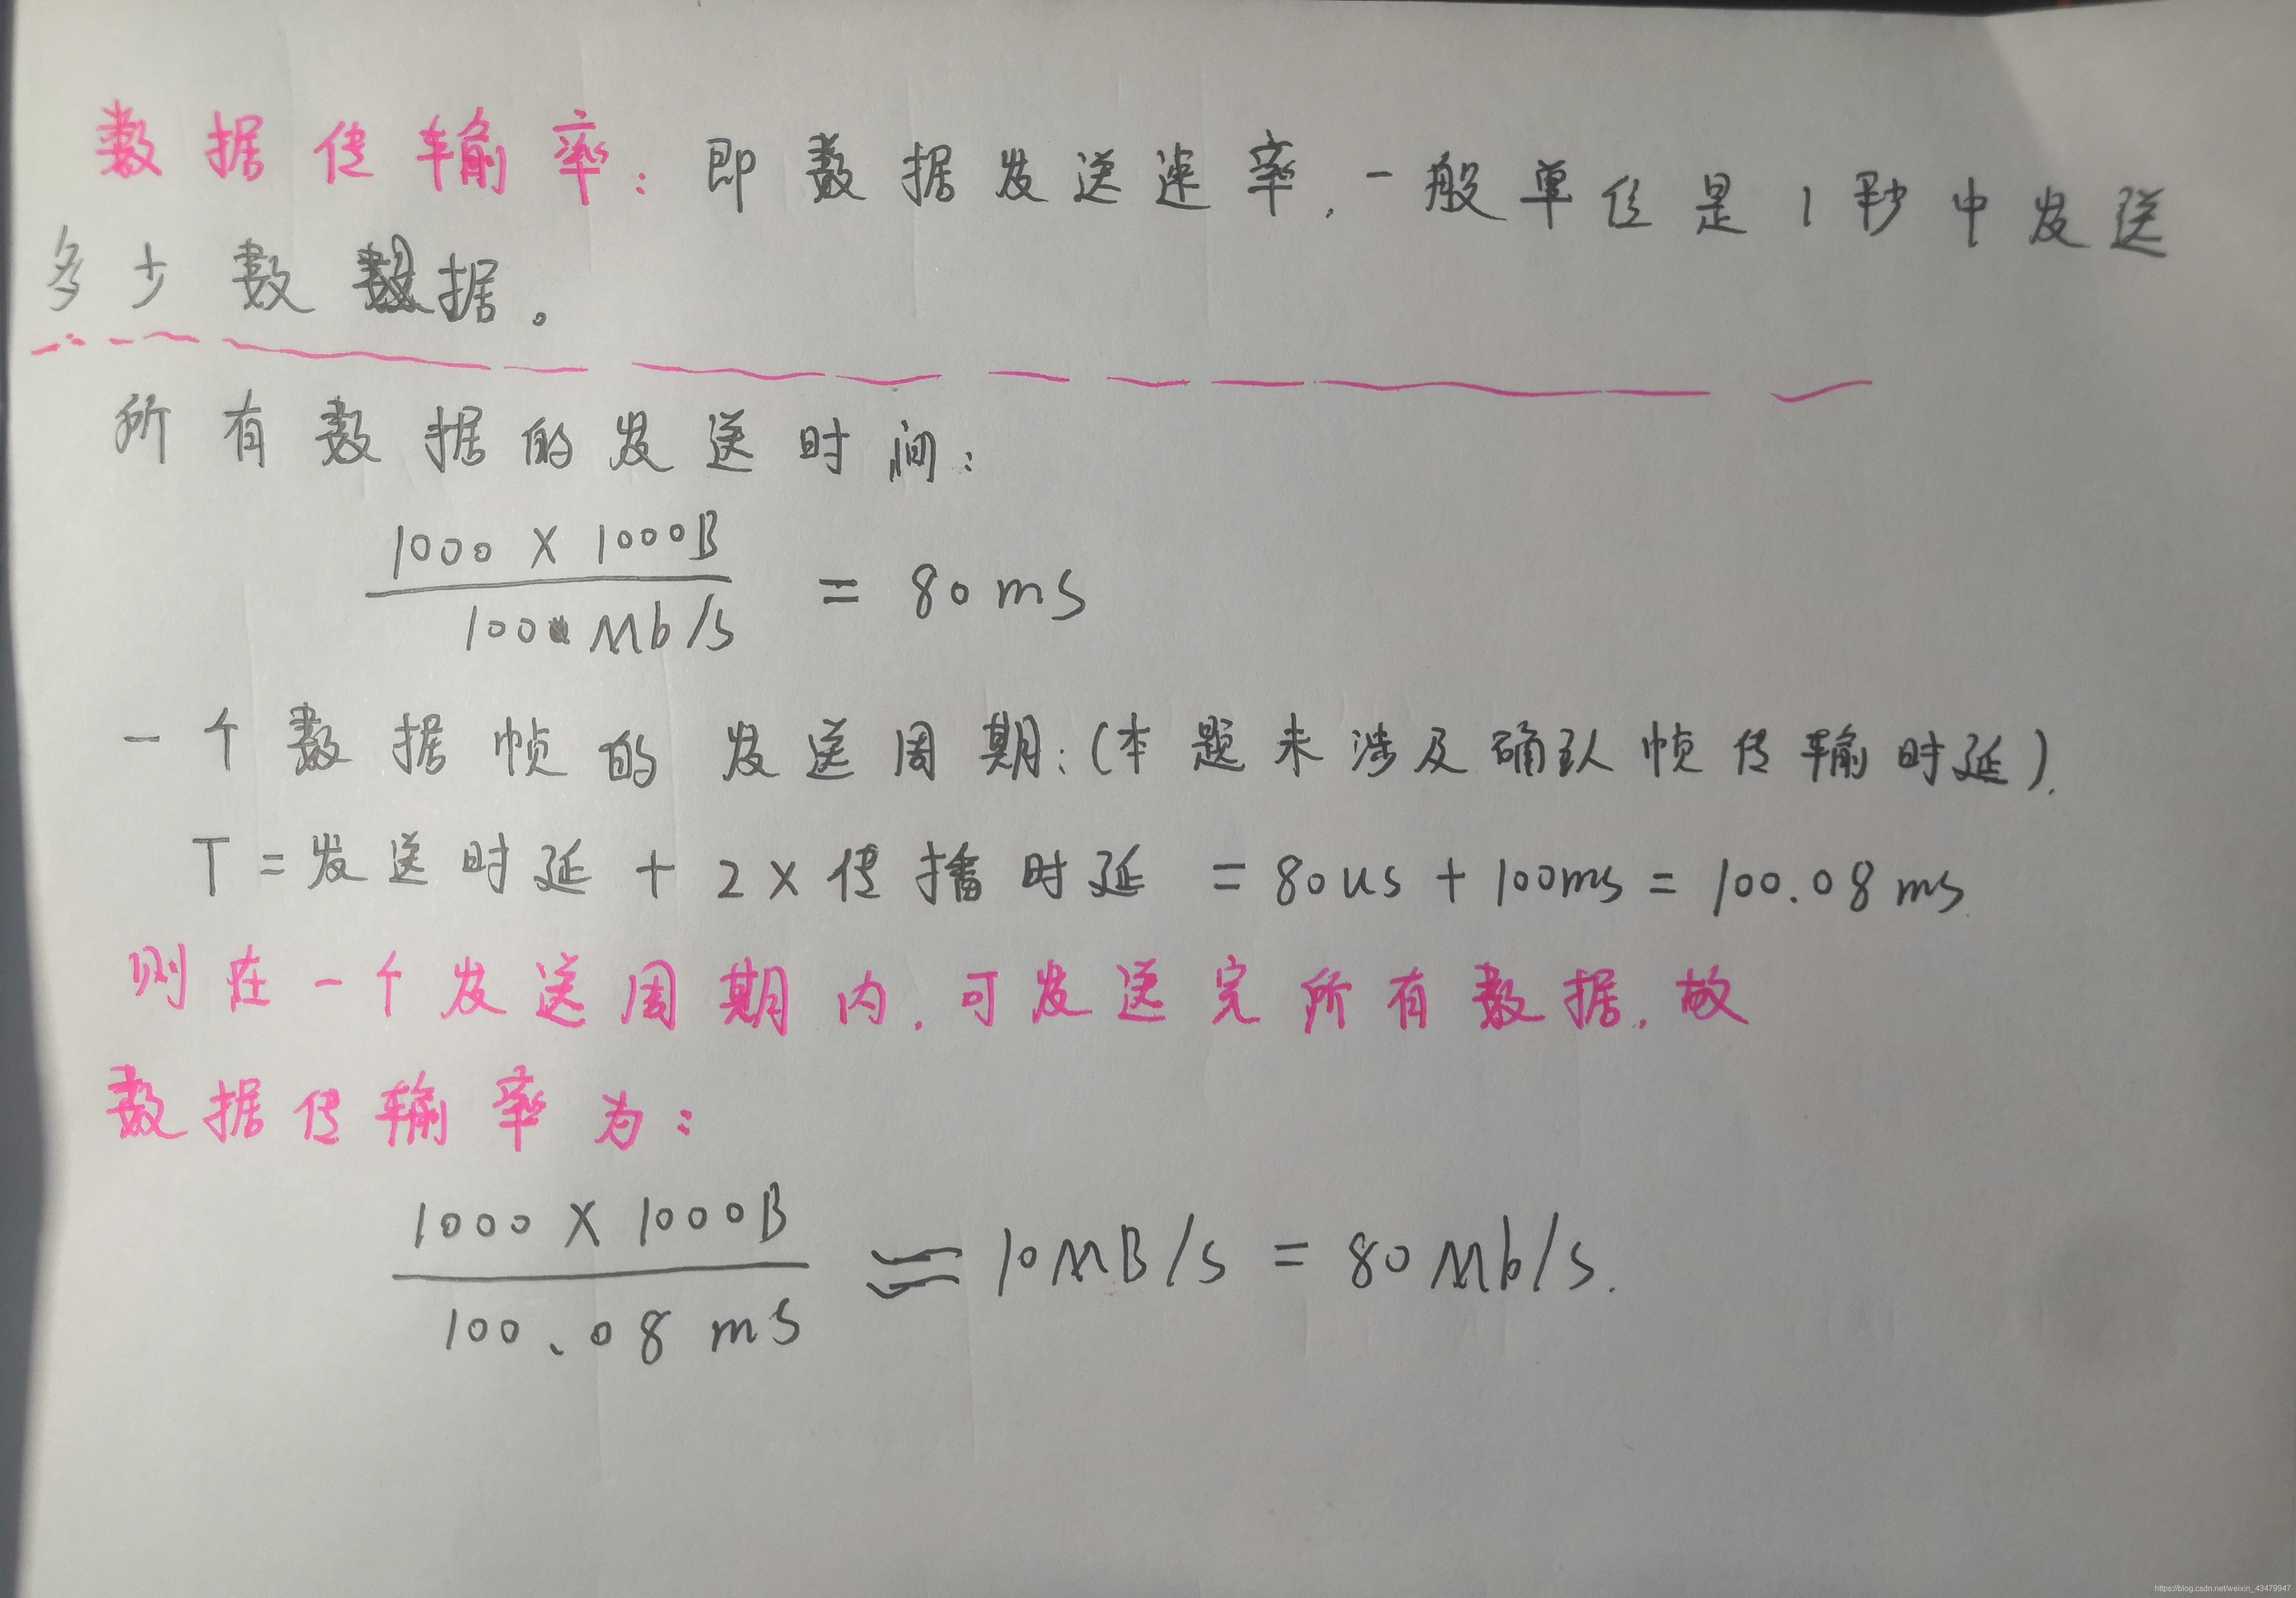 数据传输率：即数据发送速率，一般单位是1秒中发送
多少数据。
所有数据的发送时间：
1000 X 1000B
100 Mb/s
= 80ms
一个数据帧的发送周期：(本题未涉及确认帧传输时延).
T = 发送时延 + 2 X 传播时延 = 80us + 100ms = 100.08 ms
则在一个发送周期内，可发送完所有数据，故
数据传输率为：
1000 X 1000B
100.08 ms
≈ 10MB/s = 80Mb/s.
https://blog.csdn.net/weixin_43479947